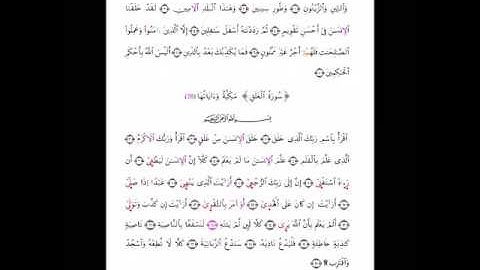 وَالتِّينِ وَالزَّيْتُونِ ۝ وَطُورِ سِينِينَ ۝ وَهَٰذَا الْبَلَدِ الَامِينِ ۝ لَقَدْ خَلَقْنَا
الِانسَٰنَ فِي أَحْسَنِ تَقْوِيمٍ ۝ ثُمَّ رَدَدْنَٰهُ أَسْفَلَ سَٰفِلِينَ ۝ إِلَّا الَّذِينَ ءَامَنُوا وَعَمِلُوا
الصَّٰلِحَٰتِ فَلَهُمُ أَجْرٌ غَيْرُ مَمْنُونٍ ۝ فَمَا يُكَذِّبُكَ بَعْدُ بِالدِّينِ ۝ أَلَيْسَ اللَّهُ بِأَحْكَمِ
الْحَٰكِمِينَ ۝
﴿سُورَةُ الْعَلَقِ﴾ مَكِّيَّةٌ وَءَايَاتُهَا (20)
بِسْمِ اللَّهِ الرَّحْمَٰنِ الرَّحِيمِ
اقْرَأْ بِاسْمِ رَبِّكَ الَّذِي خَلَقَ ۝ خَلَقَ الِانسَٰنَ مِنْ عَلَقٍ ۝ اقْرَأْ وَرَبُّكَ الَاكْرَمُ ۝
الَّذِي عَلَّمَ بِالْقَلَمِ ۝ عَلَّمَ الِانسَٰنَ مَا لَمْ يَعْلَمْ ۝ كَلَّا إِنَّ الِانسَٰنَ لَيَطْغَىٰ ۝ أَن
رَّءَاهُ اسْتَغْنَىٰ ۝ إِنَّ إِلَىٰ رَبِّكَ الرُّجْعَىٰ ۝ أَرَايْتَ الَّذِي يَنْهَىٰ ۝ عَبْدًا إِذَا صَلَّىٰ
۝ أَرَايْتَ إِن كَانَ عَلَى الْهُدَىٰ ۝ أَوَ امَرَ بِالتَّقْوَىٰ ۝ أَرَايْتَ إِن كَذَّبَ وَتَوَلَّىٰ
۝ أَلَمْ يَعْلَم بِأَنَّ اللَّهَ يَرَىٰ ۝ كَلَّا لَئِن لَّمْ يَنتَهِ ۝ لَنَسْفَعًا بِالنَّاصِيَةِ ۝ نَاصِيَةٍ
كَٰذِبَةٍ خَاطِئَةٍ ۝ فَلْيَدْعُ نَادِيَهُ ۝ سَنَدْعُ الزَّبَانِيَةَ ۝ كَلَّا لَا تُطِعْهُ وَاسْجُدْ
وَاقْتَرِب ۩ ۝